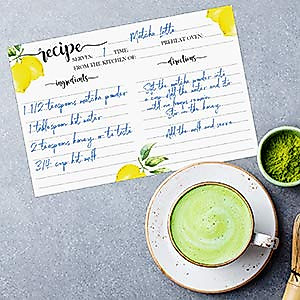 Matcha Latte
recipe
SERVES 1 TIME PREHEAT OVEN
FROM THE KITCHEN OF:
ingredients
1 1/2 teaspoons matcha powder
1 tablespoon hot water
2 teaspoons honey or to taste
3/4 cup hot milk
directions
Set the matcha powder into
a cup off the water and stir
until no lumps remain.
Stir in the honey
Add the milk and serve